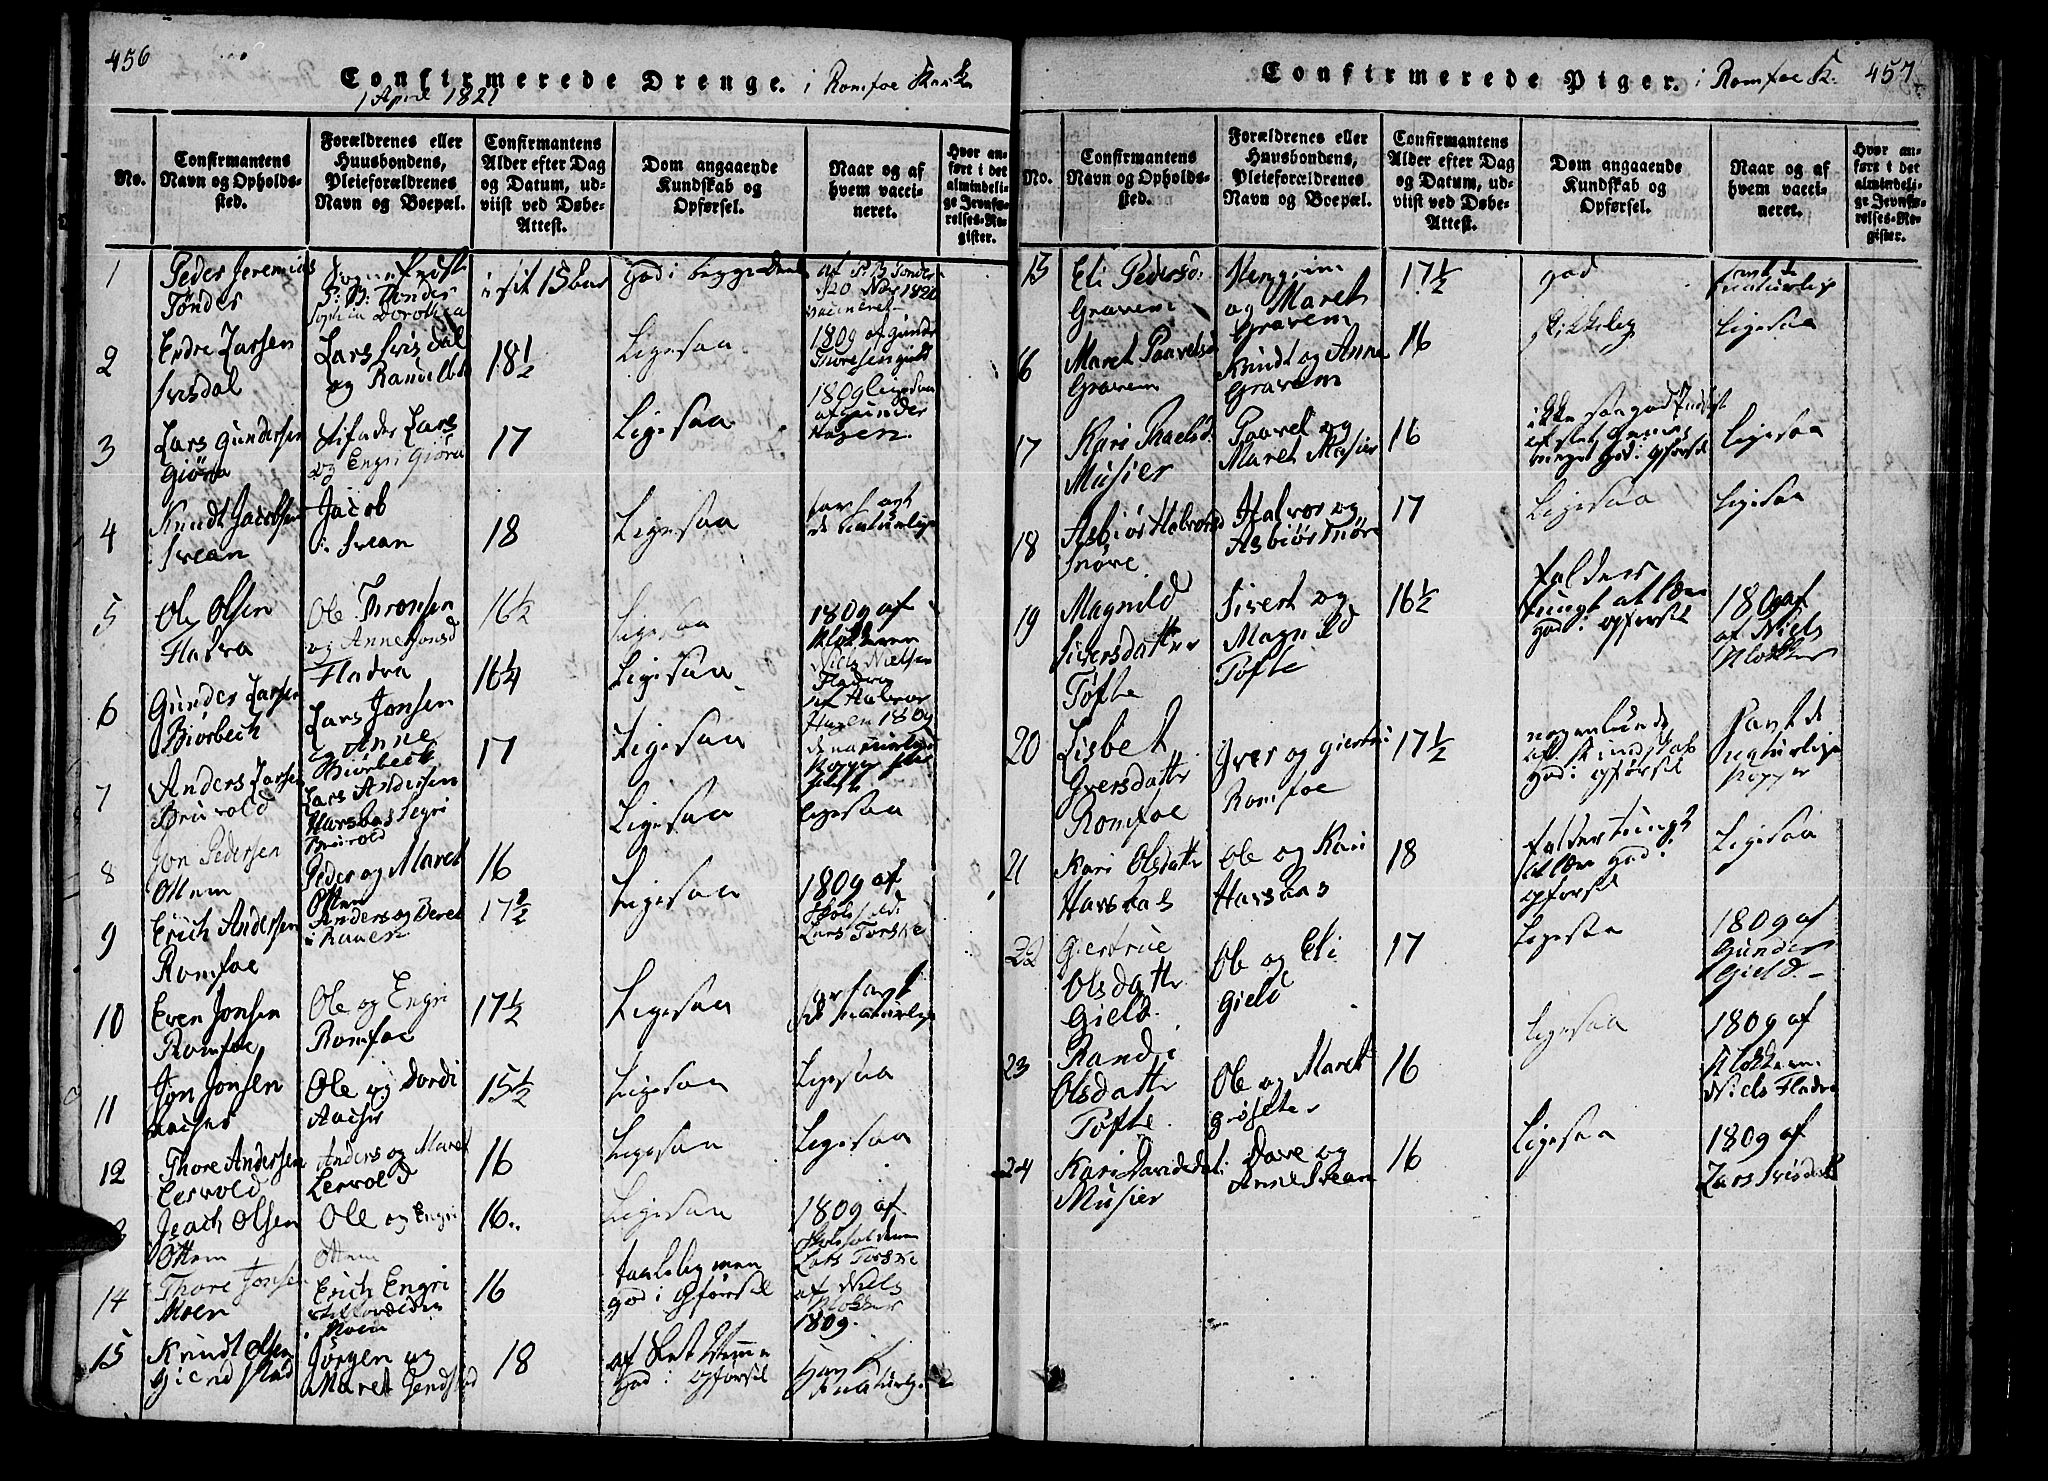 456
Confirmerede Drenge. i Romfoe Kirke
1 April 1821
No.
Confirmantens Navn og Opholds-sted.
Forældrenes eller Huusbondens, Pleieforældrenes Navn og Boepæl.
Confirmantens Alder efter Dag og Datum, ud-viist ved Døbe-Attest.
Dom angaaende Kundskab og Opførsel.
Naar og af hvem vacci-neret.
Hvor an-ført i det almindeli-ge Jevnfø-relses-Re-gister.
1
Peder Jeremias
Tønder
P: B: Tønder
Sophia Dorothea
i sit 15
god i begge Deele
af P. B Tønder
1820
2
Endre Larsen
Svisdal
Lars Svisdal
og Randi
18½
Ligesaa
1809 af Gunder
Thoresen Gield
3
Lars Gundersen
Giøra
Stifader Lars
og Engri Giøra
17
Ligesaa
1809
af Gunder
Hagen
4
Knudt Jacobsen
Svean
Jacob
Svean
18
Ligesaa
har havt
de naturlige
5
Ole Olsen
Fladva
Ole Thronsen
og Anne Jonsd
Fladva
16½
Ligesaa
1809 af
Klokkeren
Niels Nielsen
Fladva
6
Gunder Larsen
Biørbech
Lars Jonsen
og Anne
Biørbech
16¼
Ligesaa
af Halvor
Hagen 1809
7
Anders Larsen
Lars Andersen
Harsaas Segri
17
Ligesaa
de naturlige
Kopper
havt
8
Jon Pedersen
Ottem
Peder og Maret
Ottem
16
Ligesaa
Ligesaa
9
Erich Andersen
Romfoe
Anders og Beret
17½
Ligesaa
1809 af
Lars Torske
10
Even Jonsen
Romfoe
Ole og Engri
Romfoe
17½
Ligesaa
har havt
de naturlige
11
Jon Jonsen
Ole og Dordi
15½
Ligesaa
Ligesaa
12
Thore Andersen
Lervold
Anders og Maret
Lervold
16
Ligesaa
Ligesaa
Olsen
Ottem
Ole og Engri
Ottem
16
Ligesaa
1809 af
Skoleholderen
Lars Torske
14
Thore Jonsen
Moen
Erich Engri
Moen
16
taalelig men
god i Opførsel
af Niels
Klokker
1809.
15
Knudt Olsen
Giendstad
Jørgen og
Maret Jendstad
18
af slet Nemme
god i opførsel
Havt
de naturlige
457
Confirmerede Piger. i Romfoe K.
No.
Confirmantens Navn og Opholds-sted.
Forældrenes eller Huusbondens, Pleieforældrenes Navn og Boepæl.
Confirmantens Alder efter Dag og Datum, ud-viist ved Døbe-Attest.
Dom angaaende Kundskab og Opførsel.
Naar og af hvem vacci-neret.
Hvor an-ført i det almindeli-ge Jevnfø-relses-Re-gister.
15
Eli Pedersd:
Gravem
og Maret
Gravem
17½
god
skikkelig
havt de
naturlige
16
Maret Paavelsd
Gravem
Knudt og Anne
Gravem
16
Ligesaa
17
Kari
Musier
Paavel og
Maret Musier
16
ikke saa god Indsigt
god i opførsel
Ligesaa
18
Asbiør Halvorsd
Snøve
Halvor og
Asbiør Snøve
17
Ligesaa
Ligesaa
19
Magnild
Siversdatter
Tøfte
Sivert og
Magnild
Tofte
16½
falder
tungt at lære
god i opførsel
1809 af
af Niels
Klokker
20
Lisbet
Iversdattr
Romfoe
Iver og Giertru
Romfoe
17½
nogenlunde
af Kundskab
god i opførsel
havt de
naturlige
kopper
21
Kari Olsdattr
Harsaas
Ole og Kari
Harsaas
18
falder tungt
at lære god i
opførsel
Ligesaa
22
Giertrue
Olsdattr
Gield
Ole og Eli
Gield
17
Ligesaa
1809 af
Gunder
Gield
23
Randi
Olsdattr
Tøfte
Ole og Maret
16
Ligesaa
1809 af
Klokkeren
Niels Fladva
24
Kari Davidsdat:
Musier
Dave og
Anne Svean
16
Ligesaa
1809 af
Lars Svisdal